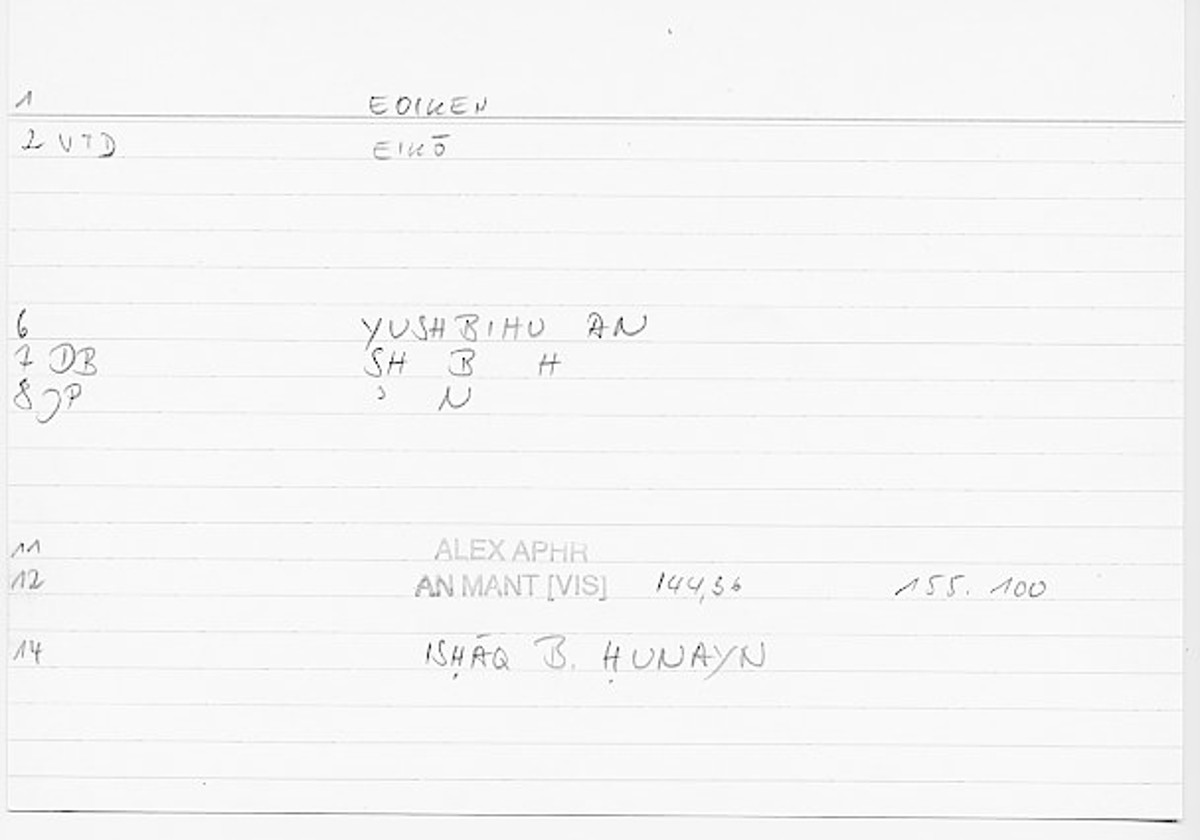 1 EOIKEN
2 VTD EIKŌ
6 YUSHBIHU AN
7 DB SH B H
8 JP ʾ N
11 ALEX APHR
12 AN MANT [VIS] 144,36 155. 100
14 ISḤĀQ B. ḤUNAYN